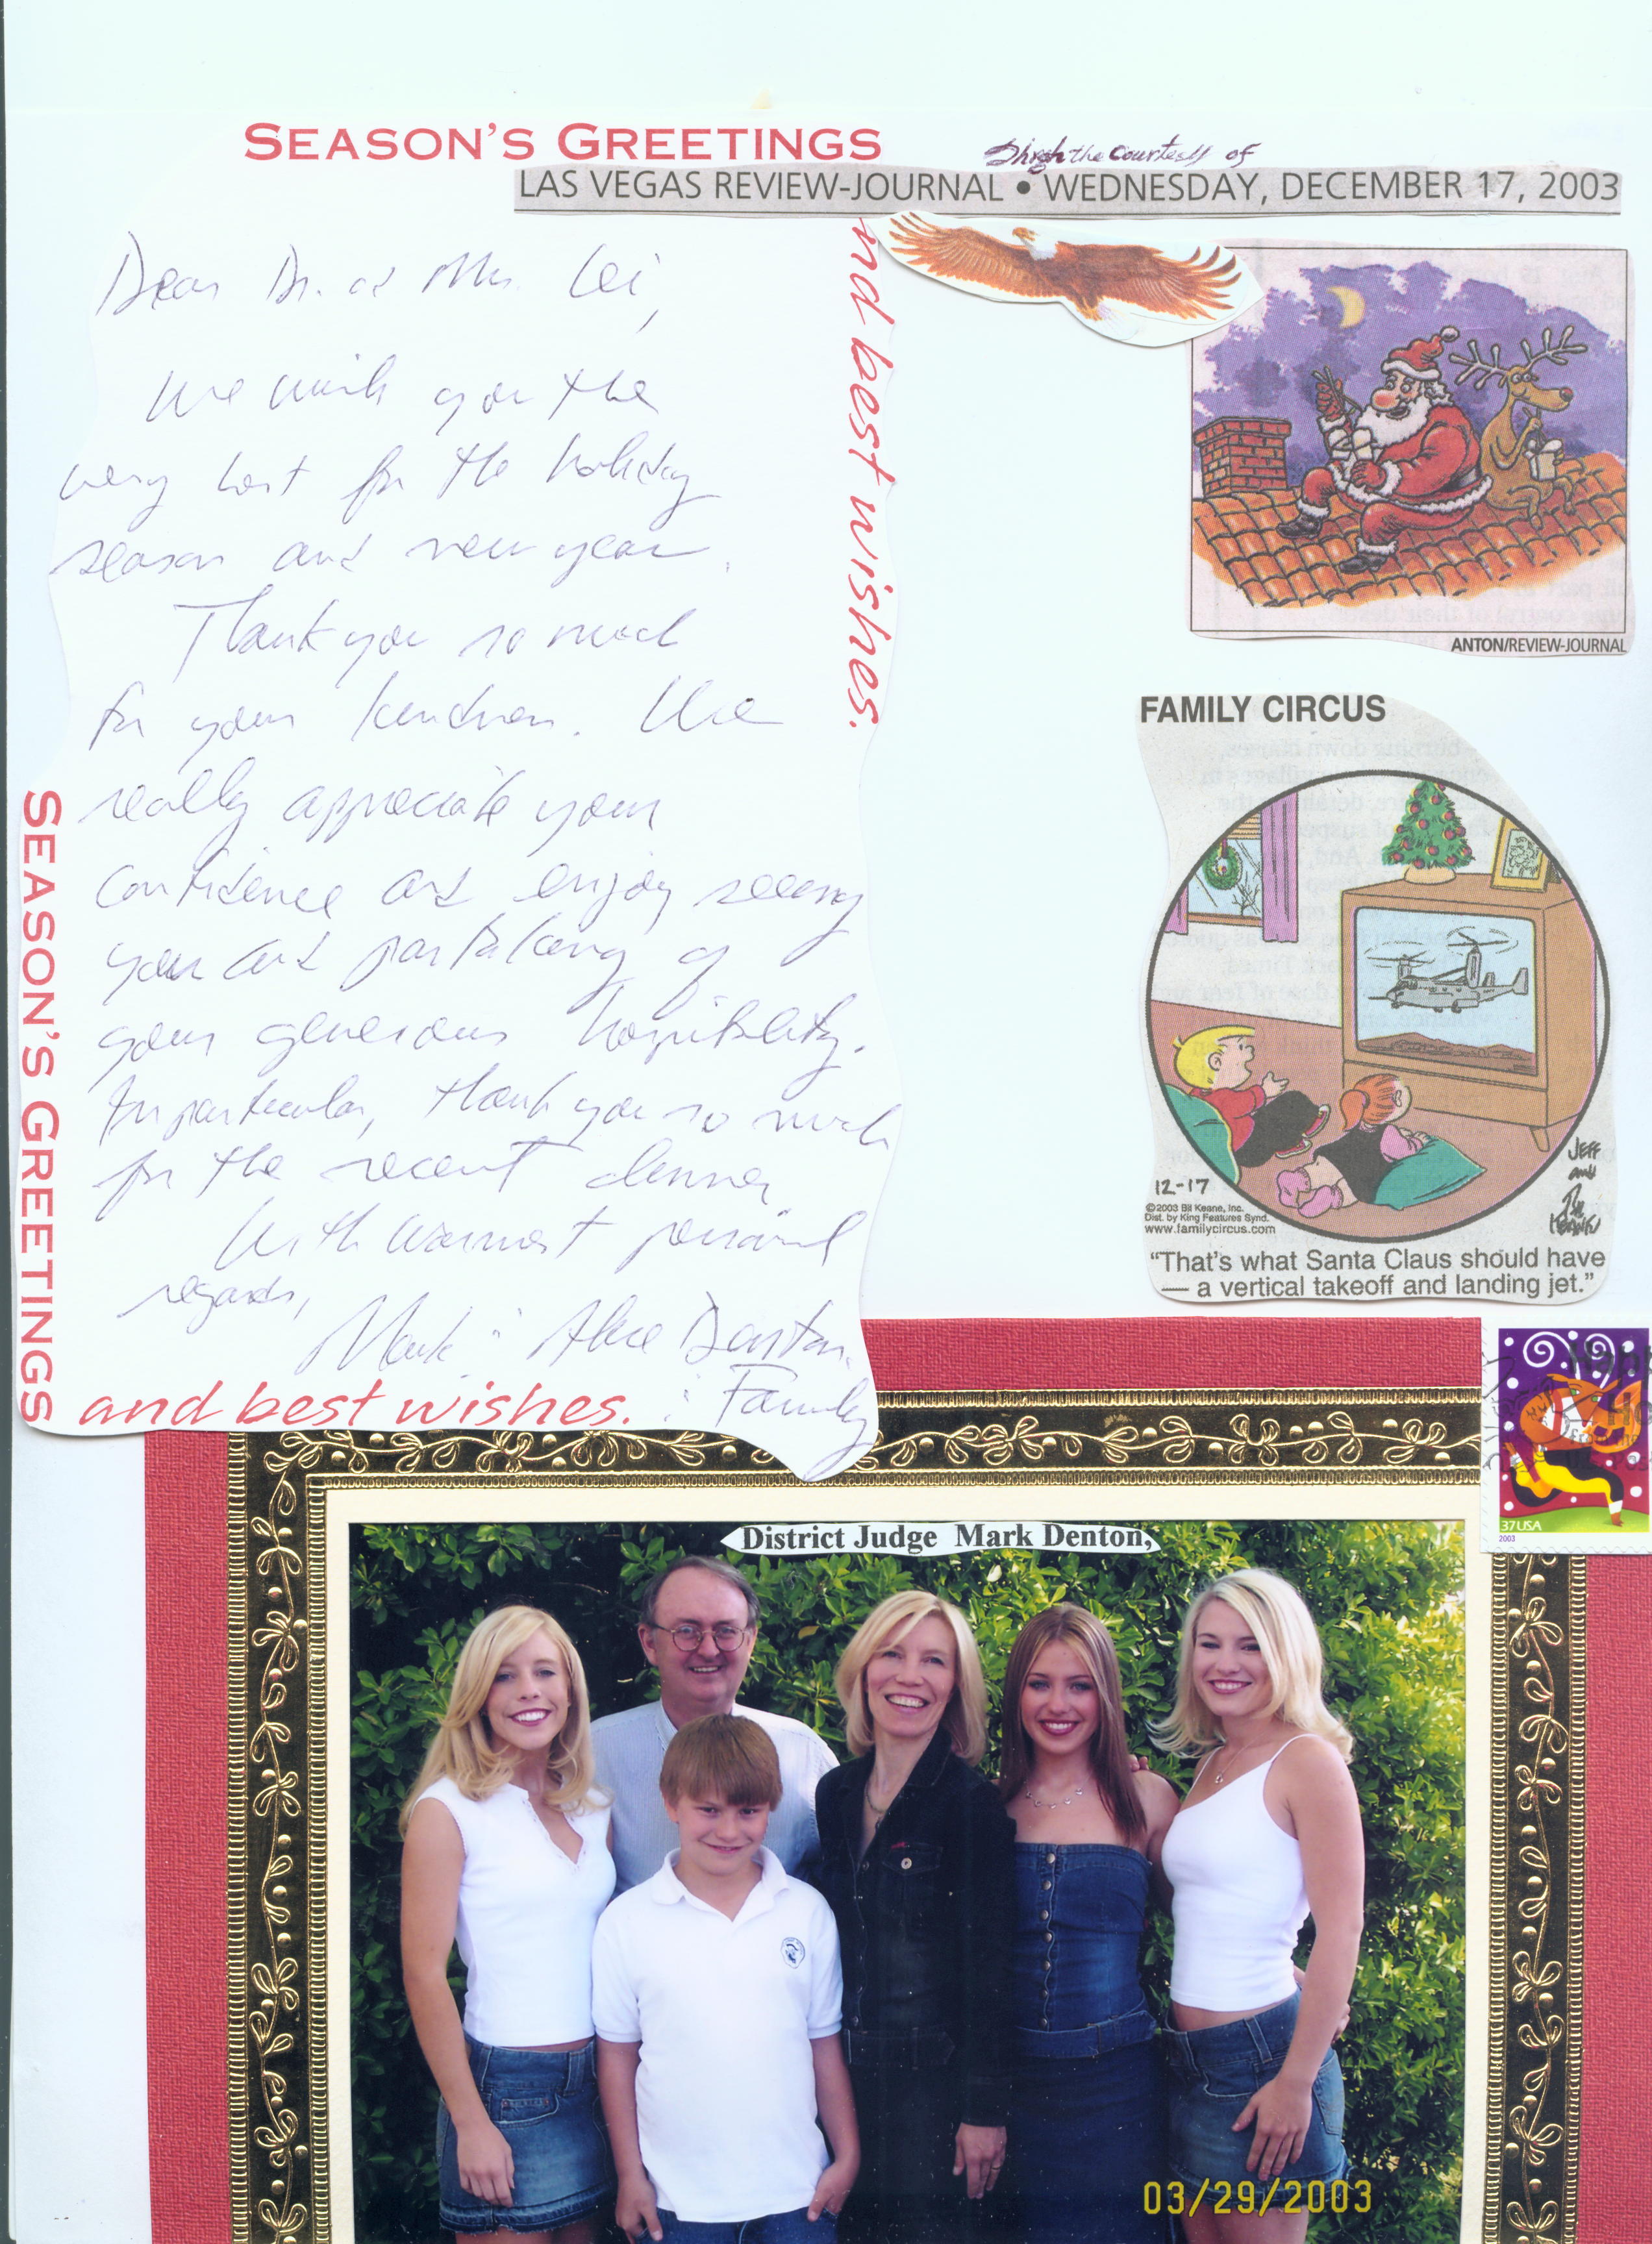 SEASON'S GREETINGS
the Courtesy of
LAS VEGAS REVIEW-JOURNAL • WEDNESDAY, DECEMBER 17, 2003
nd best wishes.
Dear Dr. and Mrs. Lei,
We wish you the
very best for the holiday
season and new year.
Thank you so much
for your kindness. We
really appreciate your
confidence and enjoy seeing
you and partaking of
your generous hospitality.
In particular, thank you so much
for the recent dinner
With warmest personal
regards,
Mark & Alice Denton
& Family
SEASON'S GREETINGS
and best wishes.
ANTON/REVIEW-JOURNAL
FAMILY CIRCUS
12-17
©2003 Bil Keane, Inc.
Dist. by King Features Synd.
www.familycircus.com
JEFF
and
BIL
KEANE
"That's what Santa Claus should have
— a vertical takeoff and landing jet."
37 USA
2003
District Judge Mark Denton,
03/29/2003